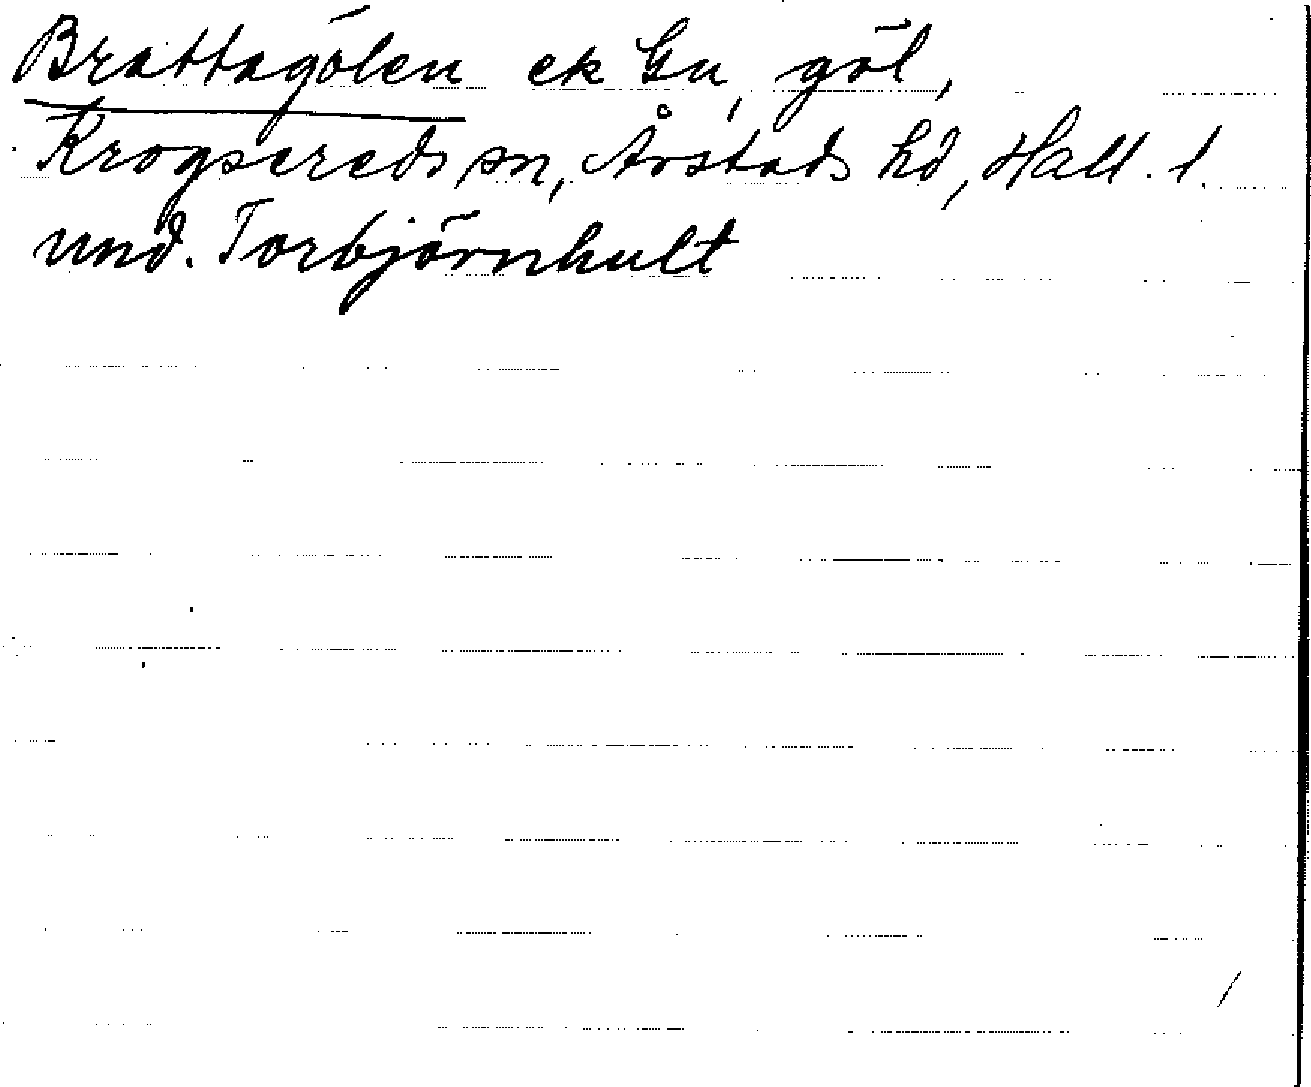 Brattagölen ek Gu, göl,
Krogsereds sn, Årstads hd, Hall. l.
und. Torbjörnhult